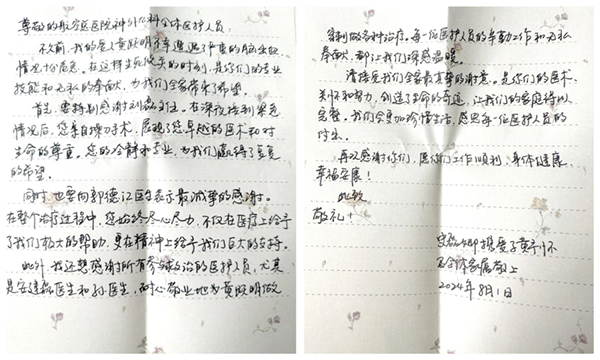 尊敬的航空总医院神外八科全体医护人员:
不久前,我的爱人黄跃明不幸遭遇了严重的脑出血,
情况十分危急。在这样生死攸关的时刻,是你们的专业
技能和无私的奉献,为我们全家带来了希望。
首先,要特别感谢刘磊主任。在深夜接到紧急
情况后,您亲自操刀手术,展现了您卓越的医术和对
生命的尊重。您的冷静和专业,为我们赢得了宝贵
的希望。
同时也要向郭德江医生表示最诚挚的感谢。
在整个治疗过程中,您始终尽心尽力,不仅在医疗上给予
了我们极大的帮助,更在精神上给予我们巨大的支持。
此外,我还想感谢所有参与救治的医护人员,尤其
是安建磊医生和孙医生,耐心敬业地为黄跃明做
穿刺做各种治疗。每一位医护人员的辛勤工作和无私
奉献,都让我们深感温暖。
请接受我们全家最真挚的谢意。是你们的医术、
关怀和努力,创造了生命的奇迹,让我们的家庭得以
完整。我们会更加珍惜生活,感恩每一位医护人员的
付出。
再次感谢你们,愿你们工作顺利,身体健康,
幸福安康!
此致
敬礼!
及全体家属敬上
2024年8月1日